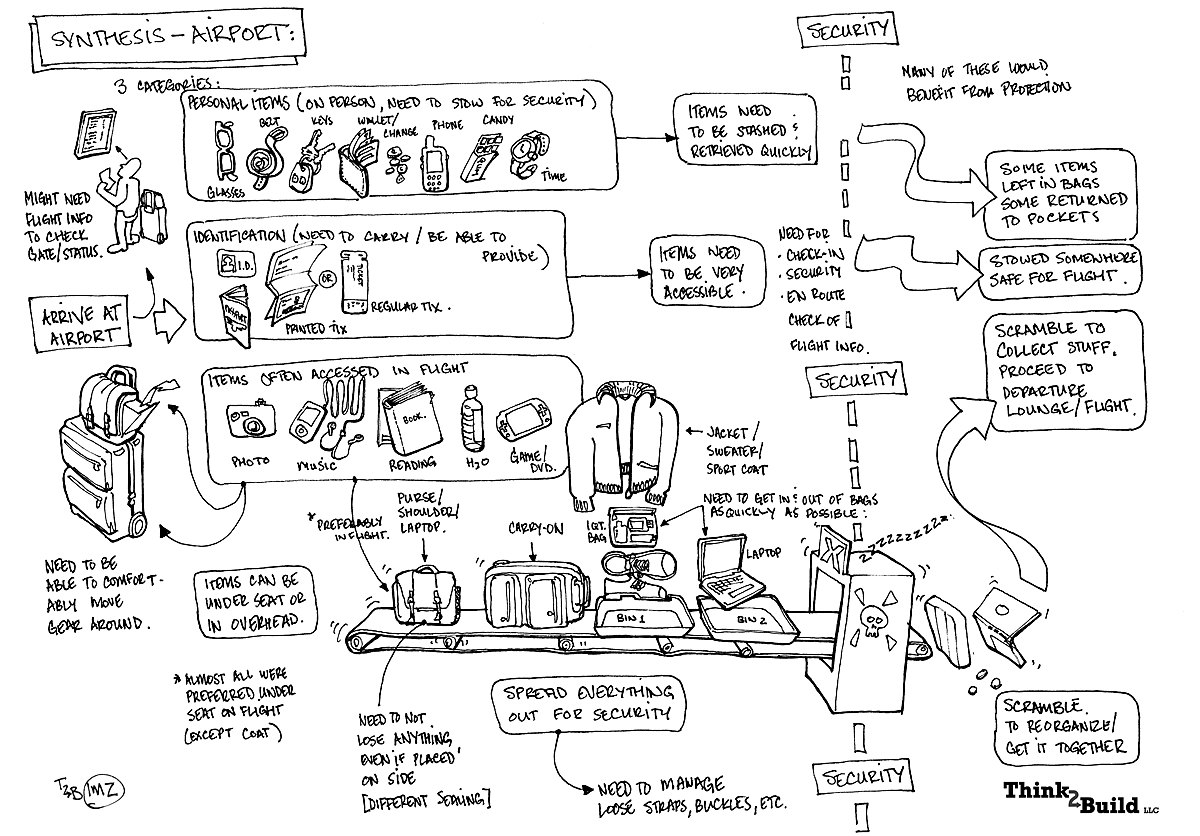 SYNTHESIS – AIRPORT:
3 CATEGORIES:
PERSONAL ITEMS (ON PERSON, NEED TO STOW FOR SECURITY)
GLASSES
BELT
KEYS
WALLET/
CHANGE
PHONE
CANDY
TIME
ITEMS NEED
TO BE STASHED &
RETRIEVED QUICKLY
SECURITY
MANY OF THESE WOULD
BENEFIT FROM PROTECTION
SOME ITEMS
LEFT IN BAGS
SOME RETURNED
TO POCKETS
MIGHT NEED
FLIGHT INFO
TO CHECK
GATE/STATUS.
ARRIVE AT
AIRPORT
IDENTIFICATION (NEED TO CARRY / BE ABLE TO
PROVIDE)
I.D.
PRINTED TIX
OR
TICKET
REGULAR TIX.
ITEMS NEED
TO BE VERY
ACCESSIBLE.
NEED FOR
· CHECK-IN
· SECURITY
· EN ROUTE
CHECK OF
FLIGHT INFO.
STOWED SOMEWHERE
SAFE FOR FLIGHT.
SCRAMBLE TO
COLLECT STUFF.
PROCEED TO
DEPARTURE
LOUNGE/FLIGHT.
SECURITY
ITEMS OFTEN ACCESSED IN FLIGHT
PHOTO
MUSIC
BOOK.
READING
H2O
GAME/
DVD.
JACKET/
SWEATER/
SPORT COAT
NEED TO GET IN & OUT OF BAGS
AS QUICKLY AS POSSIBLE:
* PREFERABLY
IN FLIGHT.
PURSE/
SHOULDER/
LAPTOP.
CARRY-ON
1 QT.
BAG
LAPTOP
BIN 1
BIN 2
X
ZZZZZZZZZZ
NEED TO BE
ABLE TO COMFORT-
ABLY MOVE
GEAR AROUND.
ITEMS CAN BE
UNDER SEAT OR
IN OVERHEAD.
* ALMOST ALL WERE
PREFERRED UNDER
SEAT ON FLIGHT
(EXCEPT COAT)
NEED TO NOT
LOSE ANYTHING
EVEN IF PLACED
ON SIDE
[DIFFERENT SEALING]
SPREAD EVERYTHING
OUT FOR SECURITY
NEED TO MANAGE
LOOSE STRAPS, BUCKLES, ETC.
SCRAMBLE
TO REORGANIZE/
GET IT TOGETHER
SECURITY
T2B IMZ
Think2Build LLC